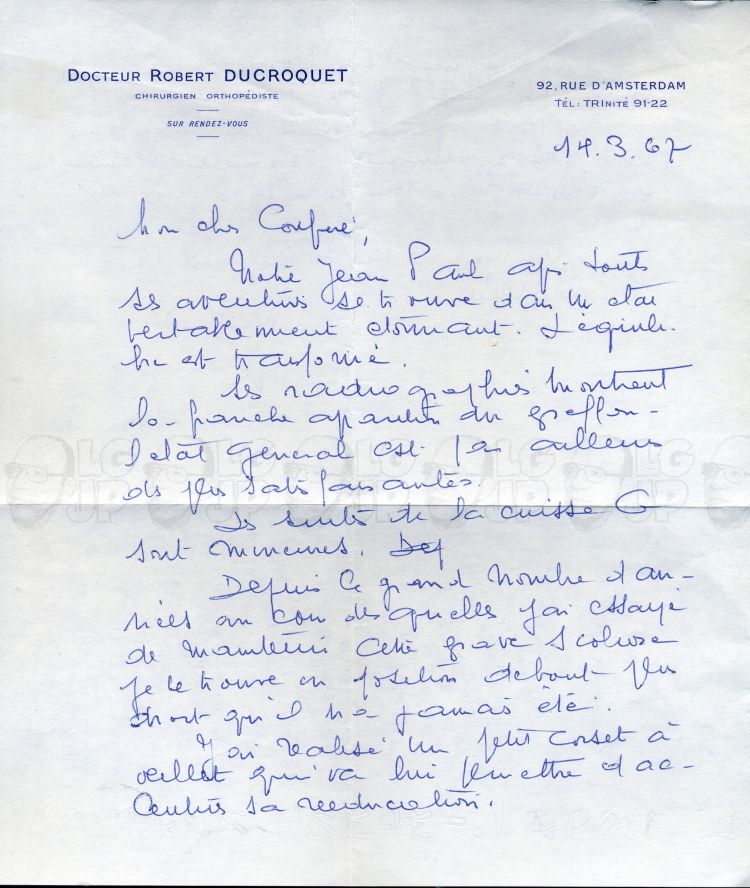 DOCTEUR ROBERT DUCROQUET
CHIRURGIEN ORTHOPÉDISTE
SUR RENDEZ-VOUS
92, RUE D'AMSTERDAM
TÉL: TRINITÉ 91-22
14.3.67
Mon cher Confrère,
Notre Jean Paul après toutes
ses aventures se trouve dans un état
véritablement étonnant. L'équili-
bre est transformé.
Les radiographies montrent
la franche apparition du greffon -
l'état général est par ailleurs
des plus satisfaisantes.
Les suites de la cuisse G
sont mineures. Dep
Depuis le grand nombre d'an-
nées au cours desquelles j'ai essayé
de maintenir cette grave scoliose
je le trouve en position debout plus
droit qu'il n'a jamais été.
J'ai réalisé un petit corset à
qui va lui permettre d'ac-
centuer sa rééducation.
LG
JP